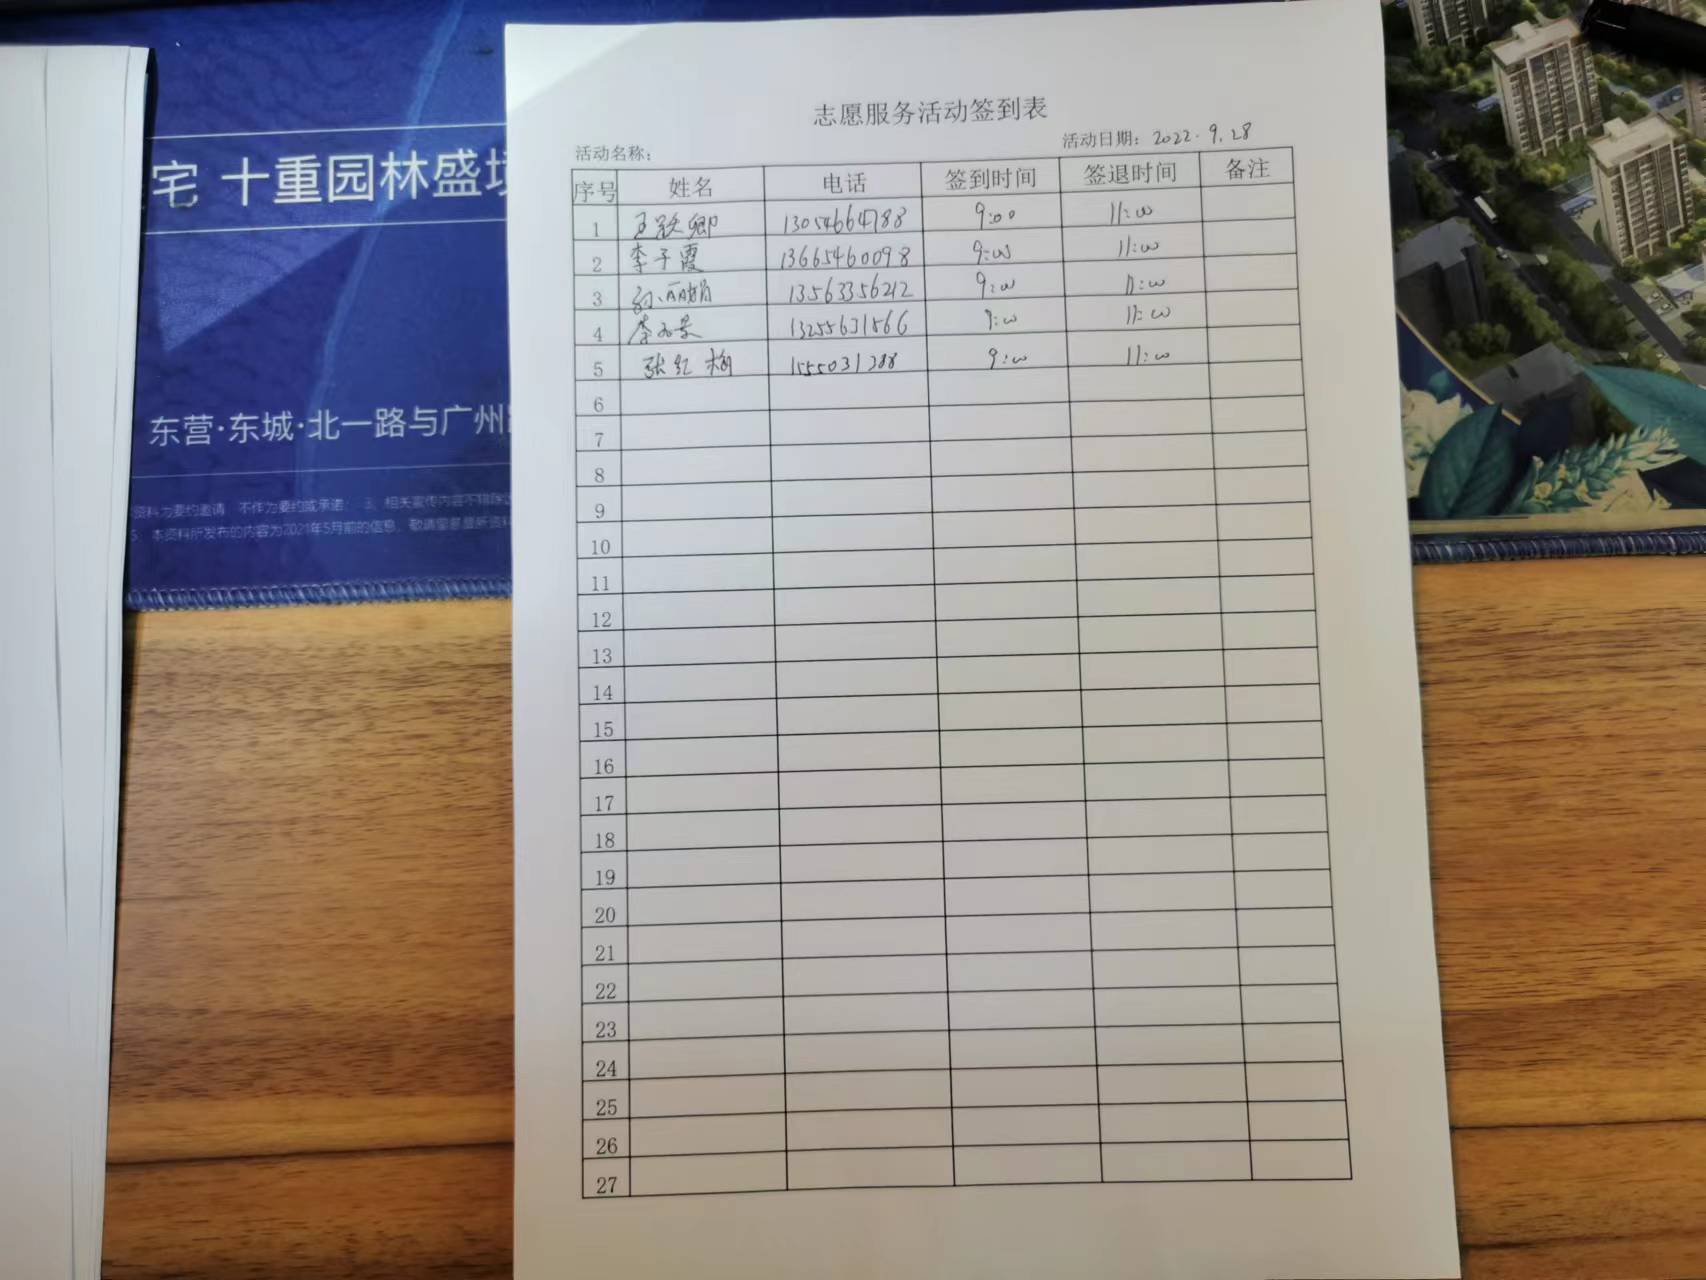 宅 十重园林盛境
东营·东城·北一路与广州路
资料为要约邀请 不作为要约或承诺； 3、相关宣传内容不排除
5、本资料所发布的内容为2021年5月前的信息，敬请留意最新资料
志愿服务活动签到表
活动名称： 活动日期：2022.9.28
序号 姓名 电话 签到时间 签退时间 备注
1 王跃卿 13054664788 9:00 11:00
2 李子霞 13665460098 9:00 11:00
3 孙丽娟 13563356212 9:00 11:00
4 李 13255631566 9:00 11:00
5 张红梅 9:00 11:00
6
7
8
9
10
11
12
13
14
15
16
17
18
19
20
21
22
23
24
25
26
27